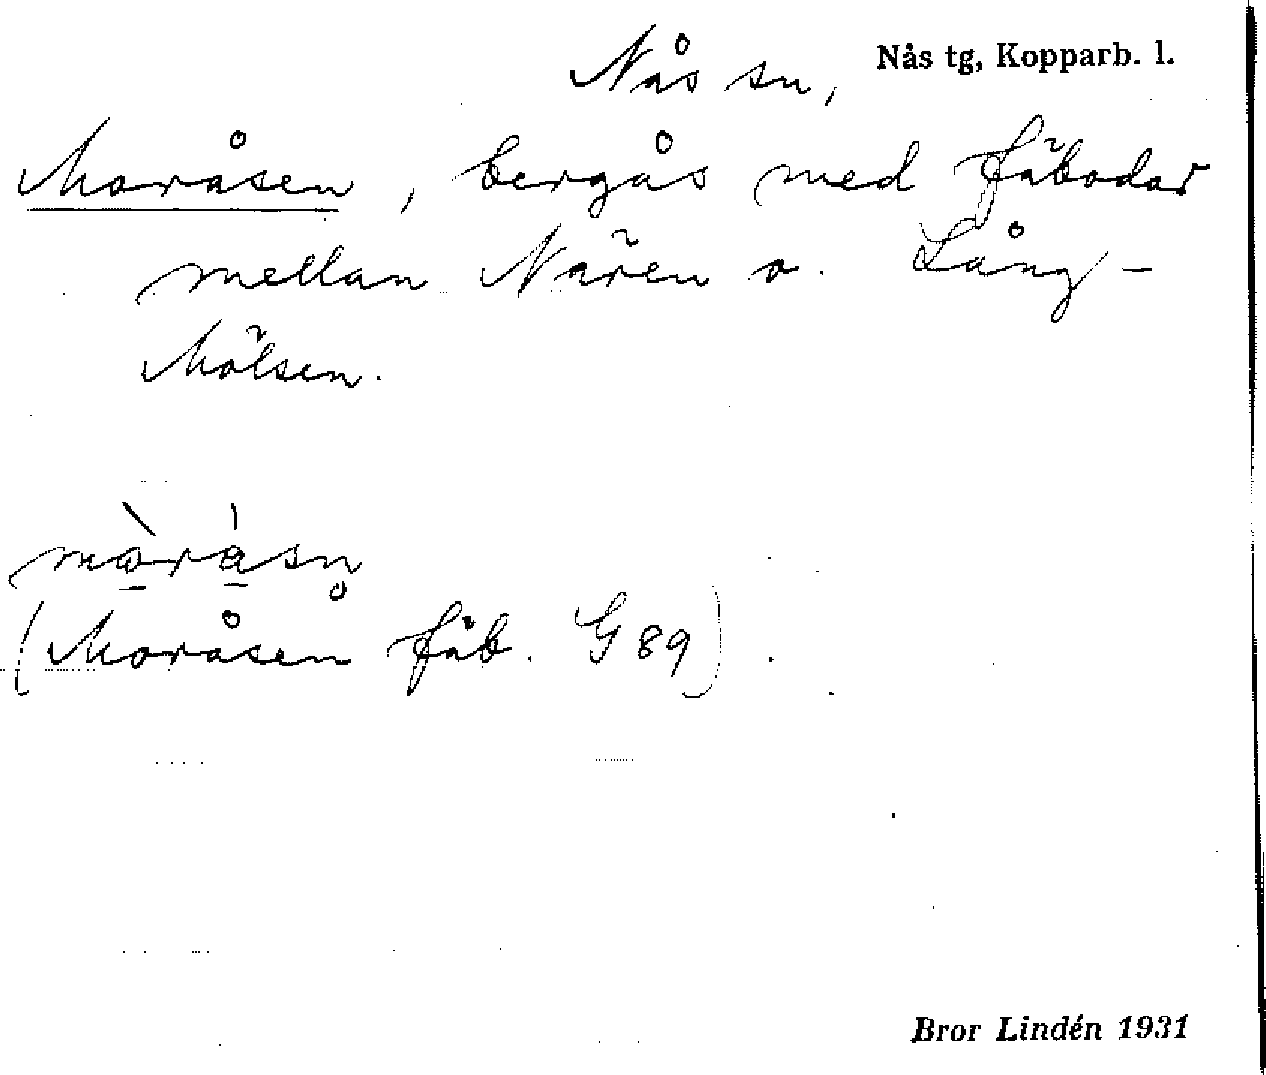 Nås sn, Nås tg, Kopparb. l.
Moråsen, bergås med fäbodar
mellan Nären o. Lång-
Mölsen.
mòrásn̥
(Moråsen fäb. G 89).
Bror Lindén 1931